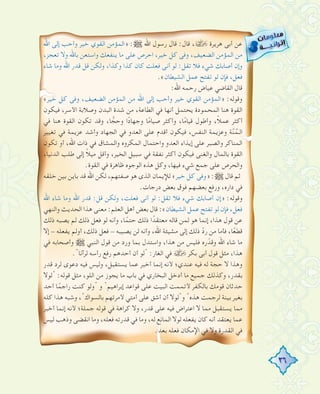 معلومات إثرائية
عن أبي هريرة ﷺ، قال: قال رسول الله ﷺ: «المؤمن القوي خير وأحب إلى الله
من المؤمن الضعيف، وفي كل خير، احرص على ما ينفعك واستعن بالله ولا تعجز،
وإن أصابك شيء فلا تقل: لو أني فعلت كان كذا وكذا، ولكن قل قدر الله وما شاء
فعل، فإن لو تفتح عمل الشيطان».
قال القاضي عياض رحمه الله:
وقوله: «المؤمن القوي خير وأحب إلى الله من المؤمن الضعيف، وفي كل خير»
القوة هنا المحمودة يحتمل أنها في الطاعة، من شدة البدن وصلابة الأسر، فيكون
أكثر عملاً، وأطول قيامًا، وأكثر صيامًا وجهادًا وحجًا، وقد تكون القوة هنا في
المُنّة وعزيمة النفس، فيكون أقدم على العدو في الجهاد وأشد عزيمة في تغيير
المناكر والصبر على إيذاء العدو واحتمال المكروه والمشاق في ذات الله، أو تكون
القوة بالمال والغنى فيكون أكثر نفقة في سبيل الخير، وأقل ميلاً إلى طلب الدنيا،
والحرص على جمع شيء فيها، وكل هذه الوجوه ظاهرة في القوة.
ثم قال ﷺ: «وفي كل خير» للإيمان الذي هو صفتهم، لكن الله قد باين بين خلقه
في داره، ورفع بعضهم فوق بعض درجات.
وقوله: «إن أصابك شيء فلا تقل: لو أني فعلت، ولكن قل: قدر الله وما شاء الله
فعل، فإن لو تفتح عمل الشيطان»: قال بعض أهل العلم: معنى هذا الحديث والنهي
عن قول هذا، إنما هو لمن قاله معتقدًا ذلك حتمًا، وأنه لو فعل ذلك لم يصبه ذلك
قطعًا، فأما من ردّ ذلك إلى مشيئة الله، وأنه لن يصيبه – فعل ذلك، أو لم يفعله – إلا
ما شاء الله وقدّره فليس من هذا، واستدل بما ورد من قول النبي ﷺ وأصحابه في
هذا، مثل قول أبي بكر في الغار: "لو أن أحدهم رفع رأسه لرآنا".
وهذا لا حجة له فيه عندي؛ لأنه إنما أخبر عما يستقبل، وليس فيه دعوى لرد قدر
بقدره، وكذلك جميع ما أدخل البخاري في باب ما يجوز من اللو، مثل قوله: "لولا
حدثان قومك بالكفر لأتممت البيت على قواعد إبراهيم" و"لو كنت راجمًا أحد
بغير بينة لرجمت هذه" و"لولا أن أشق على أمتي لأمرتهم بالسواك"، وشبه هذا كله
مما يستقبل مما لا اعتراض فيه على قدر، ولا كراهة في قوله جملة؛ لأنه إنما أخبر
عما يعتقد أنه كان يفعله لولا المانع له، وما في قدرته فعله، وما انقضى وذهب ليس
في القدرة ولا في الإمكان فعله بعد.
٣٦